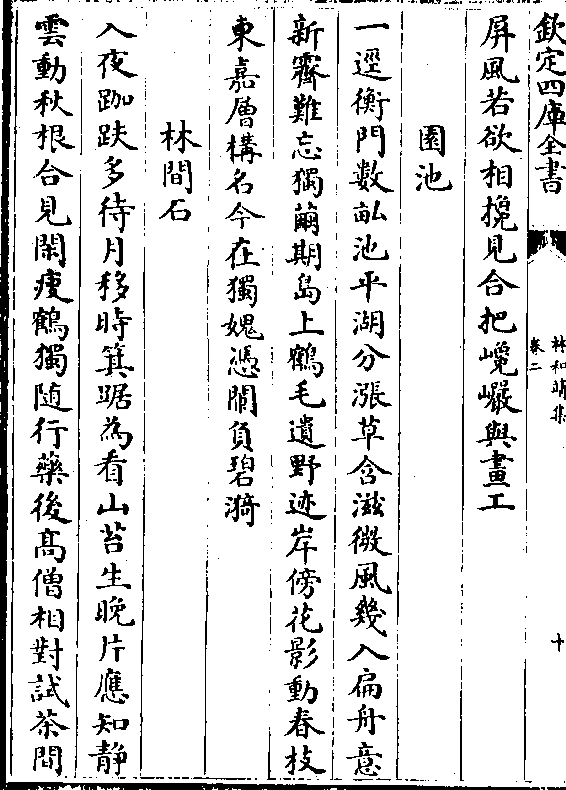 欽定四庫全書
林和靖集
卷二
十
屏風若欲相攙見合把巉巖與畫工
園池
一逕衡門數畝池平湖分漲草含滋微風幾入扁舟意
新霽難忘獨繭期島上鶴毛遺野迹岸傍花影動春枝
東嘉層構名今在獨媿憑闌負碧漪
林間石
入夜跏趺多待月移時箕踞為看山苔生晚片應知静
雲動秋根合見閑瘦鶴獨随行藥後髙僧相對試茶間